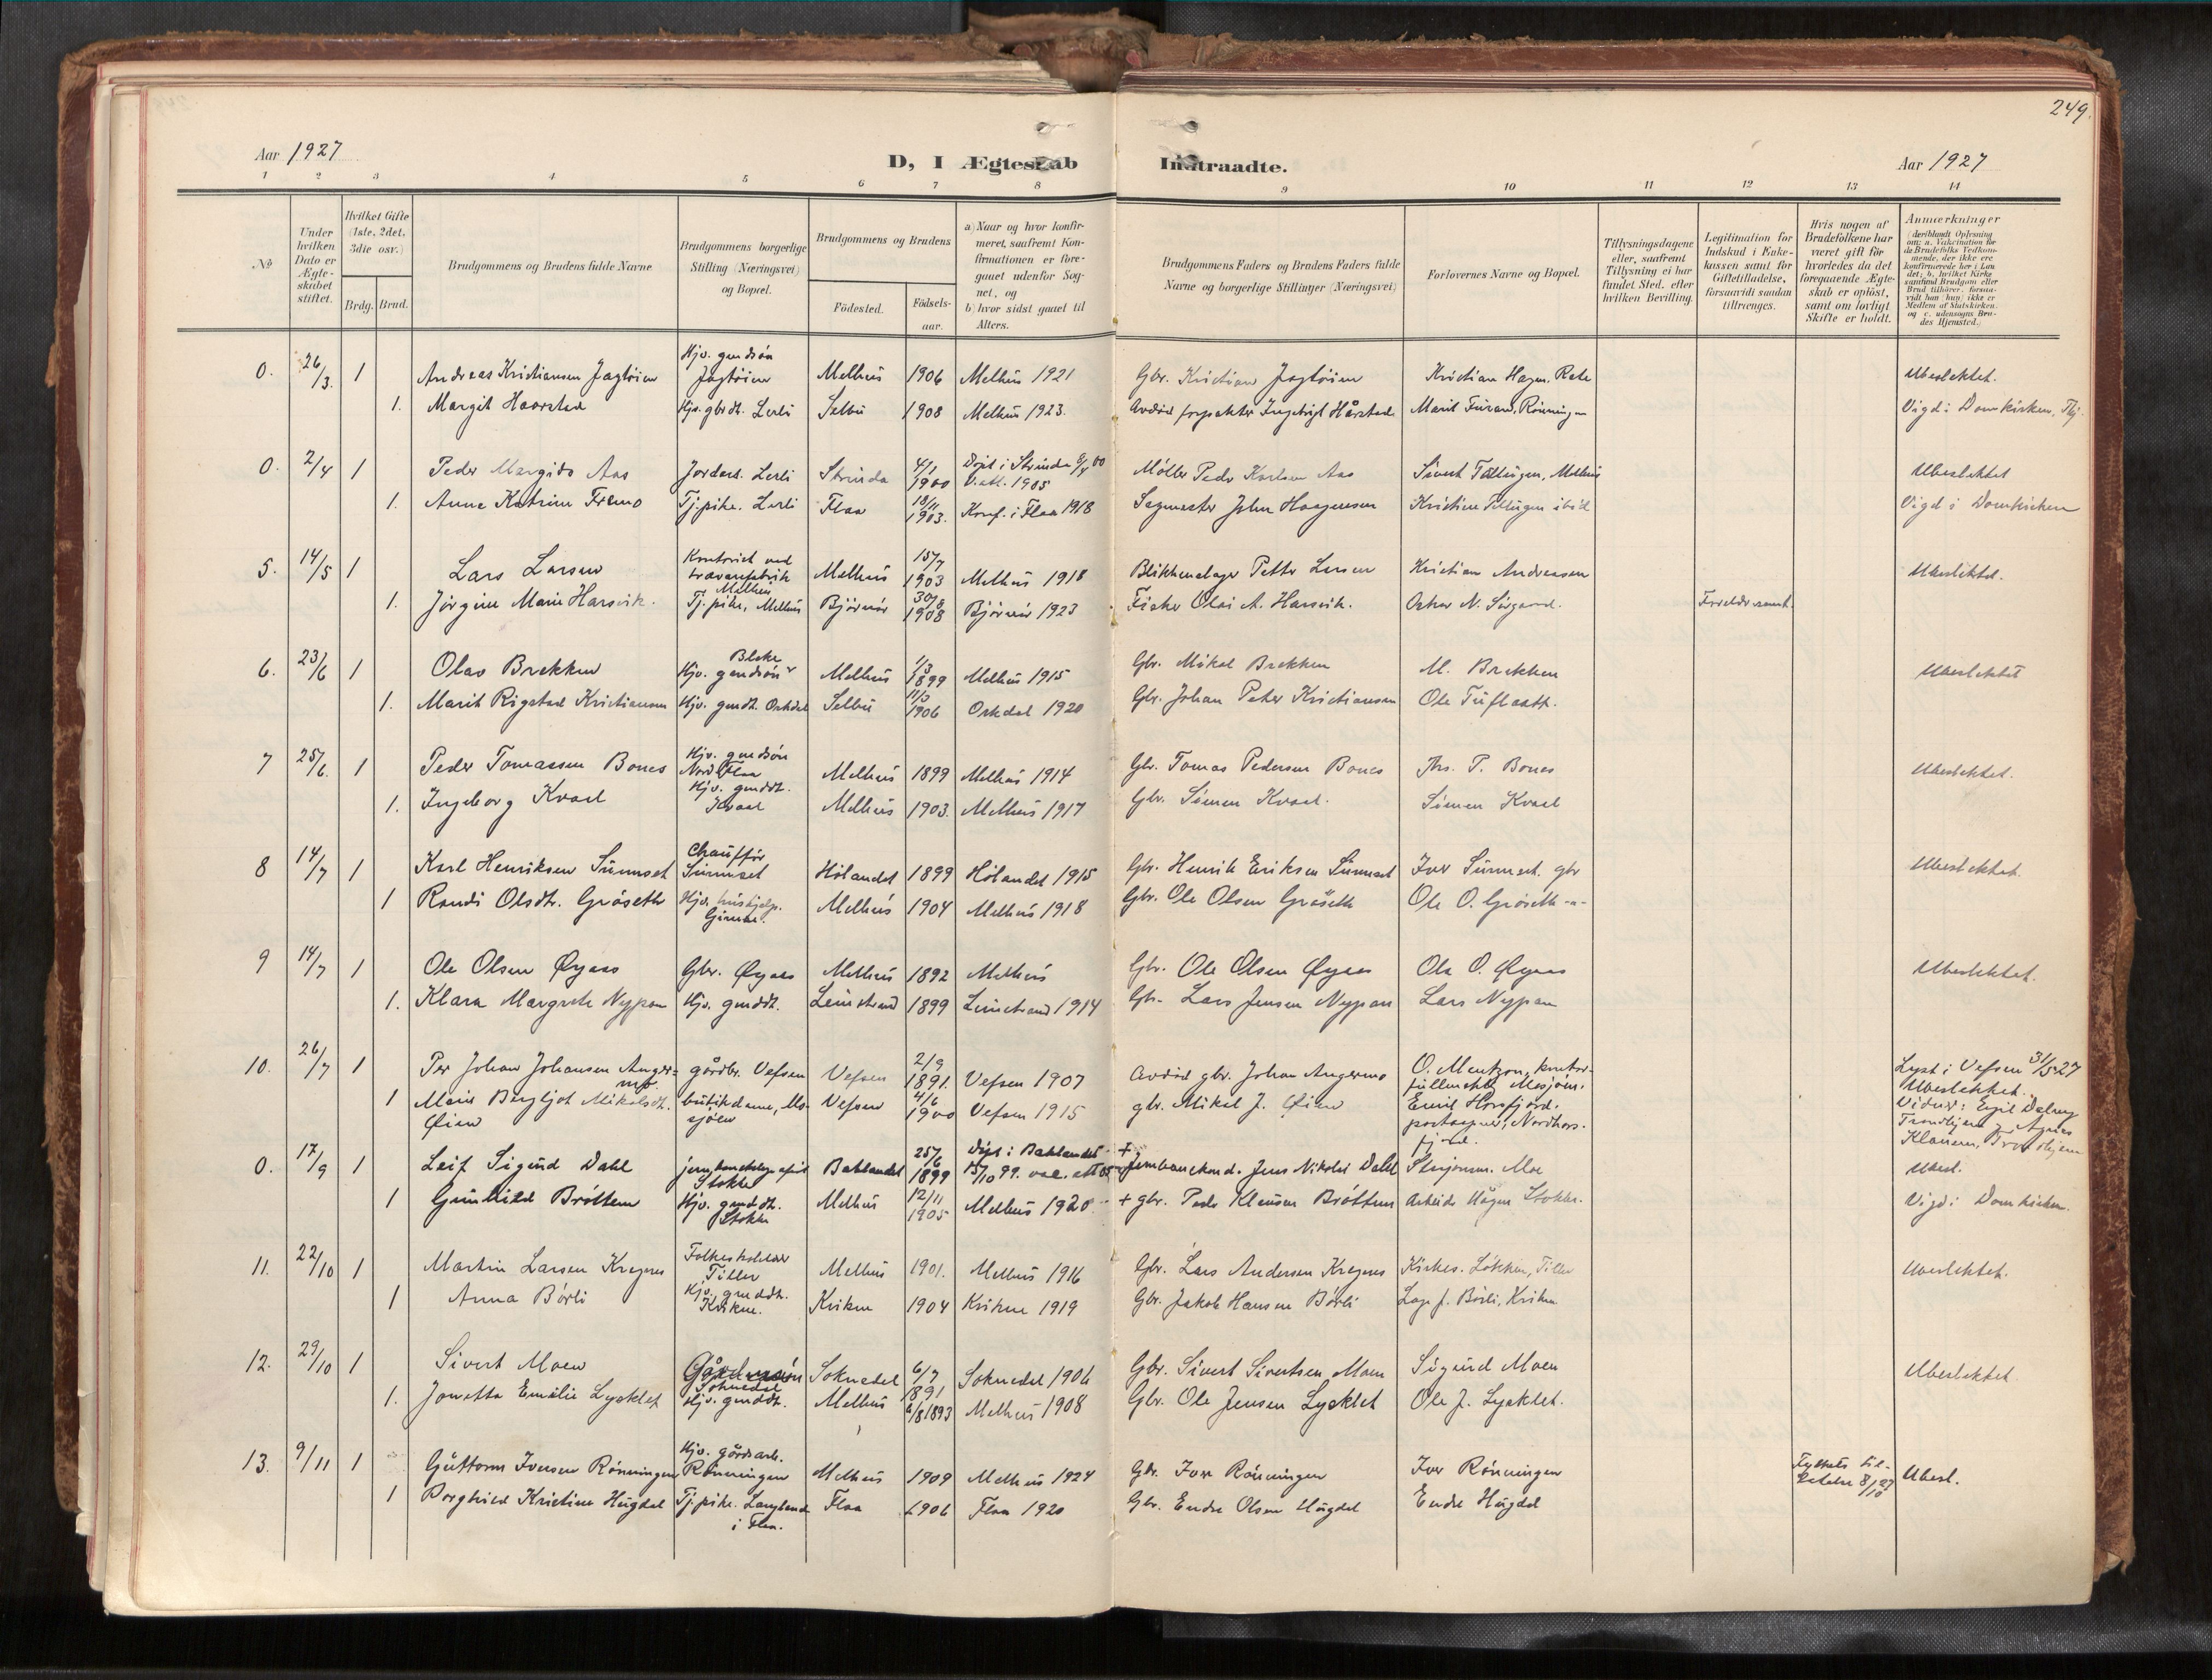 249.
Aar 1927
D, I Ægteskab
Indtraadte.
Aar 1927
1 2 3 4 5 6 7 8 9 10 11 12 13 14
№
Under hvilken Dato er Ægteskabet stiftet.
Hvilket Gifte (1ste, 2det, 3die osv.)
Brdg. Brud.
Brudgommens og Brudens fulde Navne
Brudgommens borgerlige Stilling (Næringsvei) og Bopæl.
Brudgommens og Brudens
Födested.
Födselsaar.
a) Naar og hvor konfirmeret, saafremt Konfirmationen er foregaaet udenfor Sognet, og
b) hvor sidst gaaet til Alters.
Brudgommens Faders og Brudens Faders fulde Navne og borgerlige Stillinger (Næringsvei)
Forlovernes Navne og Bopæl.
Tillysningsdagene eller, saafremt Tillysning ei har fundet Sted, efter hvilken Bevilling.
Legitimation for Indskud i Enkekassen samt for Giftetilladelse, forsaavidt saadan tiltrænges.
Hvis nogen af Brudefolkene har været gift før hvorledes da det foregaaende Ægteskab er opløst, samt om lovligt Skifte er holdt.
Anmærkninger
(deriblandt Oplysning om: a. Vakcination for de Brudefolks Vedkommende, der ikke ere konfirmerede her i Landet; b. hvilket Kirkesamfund Brudgom eller Brud tilhører, forsaavidt han (hun) ikke er Medlem af Statskirken, og c. udensogns Brudes Hjemsted.)
0. 26/3. 1 Andreas Kristiansen Jagtöien Hjv. gmdsön Jagtöien Melhus 1906 Melhus 1921 Gbr. Kristian Jagtöien Kristian Hagen, Ubeslektet.
1. Margit Haarstad Hjv. gbrdt. Lerli Selbu 1908 Melhus 1923. Avdöd forpakter Ingebrigt Hårstad Marit Rönningen Vigd i Domkirken, Thj.
0. 2/4 1 Peder Margido Aas Jordarb. Lerli Strinda 4/1 1900 Döpt i Strinda 8/4 00 V.att. 1905 Möller Peder Karlsen Aas Sivert Tillugen, Melhus Ubeslektet
1. Anna Katrine Fremo Tj.pike. Lerli Flaa 18/11 1903. Konf. i Flaa 1918 Sagmester John Haagensen Kristine Tillugen ibid Vigd i Domkirken
5. 14/5 1 Lars Larsen Kontorist ved trævarefabrik Melhus Melhus 15/7 1903 Melhus 1918 Blikkenslager Petter Larsen Kristian Andreassen Ubeslektet.
1. Jörgine Marie Harsvik. Tj.pike, Melhus Björnör 30/8 1908 Björnör 1923 Fisker Olai A. Harsvik. Oskar N. Foreldr. samt.
6. 23/6 1 Olav Brekken Hjv. gmdsön Melhus 1/3 1899 Melhus 1915 Gbr. Mikal Brekken M. Brekken Ubeslektet
1. Marit Rigstad Kristiansen Hjv. gmdt. Orkdal Selbu 11/3 1906 Orkdal 1920 Gbr. Johan Peter Kristiansen Ole Tuflaatt.
7 25/6. 1 Peder Tomassen Bones Hjv. gmdsön Nord Flaa Melhus 1899 Melhus 1914 Gbr. Tomas Pedersen Bones Ths. P. Bones Ubeslektet.
1. Ingeborg Kvaal Hjv. gmddt. Kvaal Melhus 1903. Melhus 1917 Gbr. Simen Kvaal. Simen Kvaal
8 14/7 1 Karl Henriksen Sunnset Chaufför Sunnset Hölandet 1899 Hölandet 1915 Gbr. Henrik Eriksen Sunnset Iver Sunnset. gbr Ubeslektet.
1 Randi Olsdtr. Gråseth Hjv. hushjelp. Gimse. Melhus 1904 Melhus 1918 Gbr. Ole Olsen Gråseth Ole O. Gråseth -"-
9 14/7 1 Ole Olsen Øyaas Gbr. Øyaas Melhus 1892 Melhus Gbr. Ole Olsen Øyaas Ole O. Øyaas Ubeslektet.
1. Klara Margrete Nypan Hjv. gmddt. Leinstrand 1899 Leinstrand 1914 Gbr. Lars Jensen Nypan Lars Nypan
10. 26/7 1 Per Johan Johansen Angermo. gårdbr. Vefsen Vefsen 2/9 1891. Vefsen 1907 Avdöd gbr. Johan Angermo O. Mentzon, kontorfullmektig Mosjöen. Lyst i Vefsen 31/5-27 Ubeslektet.
1 Marie Bergljot Mikalsdt. Öien butikdame, Mosjöen Vefsen 4/6 1900 Vefsen 1915 gbr. Mikal J. Öien Emil Horsfjord. postaapner, Nordhorsfjord. Vidner: Egil Dalseg Trondhjem Agnes Klausen, Trondhjem
0. 17/9 1 Leif Sigurd Dahl Stokke Baklandet 25/6 1899 Döpt i Baklandet 15/10 99. + Jernbanekond. Jens Nikolai Dahl Moe Ubesl.
1 Gunhild Bröttem Hjv. gmddt. Stokke Melhus 12/11 1905 Melhus 1920. + gbr. Peder Klausen Bröttem Arbeider Hågen Stokke. Vigd i Domkirken.
11. 22/10 1 Martin Larsen Kregnes Folkeskolelærer Tiller Melhus 1901. Melhus 1916 Gbr. Lars Andersen Kregnes Kirkes. Lökken, Tiller Ubeslektet.
1 Anna Börli Hjv. gmddt. Kvikne. Kvikne 1904 Kvikne 1919 Gbr. Jakob Hansen Börli Börli, Kvikne
12. 29/10 1 Sivert Moen Soknedal Soknedal 6/7 1891 Soknedal 1906 Gbr. Sivert Sivertsen Moen Sigurd Moen Ubeslektet.
1. Jonetta Emilie Lysklet Hjv. gmddt. Melhus 6/8 1893 Melhus 1908 Gbr. Ole Jensen Lysklet Ole J. Lysklet.
13. 9/11 1 Guttorm Iversen Rönningen Hjv. gårdsarb. Rönningen Melhus 1909 Melhus 1924 Gbr. Iver Rönningen Iver Rönningen Fylkets tillatelse 8/10 27 Ubesl.
1 Borghild Kristine Hugdal Tj.pike. Langland i Flaa. Flaa 1906 Flaa 1920 Gbr. Endre Olsen Hugdal Endre Hugdal